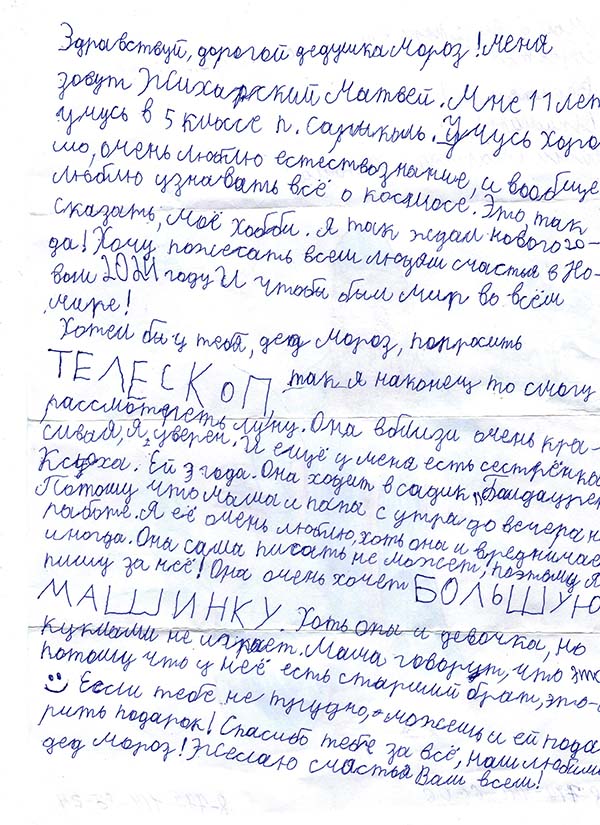 Здравствуй, дорогой дедушка Мороз! Меня
зовут Жихарский Матвей. Мне 11 лет
учусь в 5 классе п. Сарыколь. Учусь хоро-
шо, очень люблю естествознание, и вообще
люблю узнавать всё о космосе. Это так
сказать, моё хобби. Я так ждал нового го-
да! Хочу пожелать всем людям счастья в Но-
вом 2021 году И чтобы был мир во всём
мире!
Хотел бы у тебя, дед Мороз, попросить
ТЕЛЕСКОП, так я наконец то смогу
рассмотреть луну. Она вблизи очень кра-
сивая, Я уверен. И ещё у меня есть сестрёнка
Ксюха. Ей 3 года. Она ходит в садик
Потому что мама и папа с утра до вечера н
работе. Я её очень люблю, хоть она и вредничае
иногда. Она сама писать не может, поэтому я
пишу за неё! Она очень хочет БОЛЬШУЮ
МАШИНКУ. Хоть она и девочка, но
куклами не играет. Мама говорит, что это
потому что у неё есть старший брат, это-
☺ Если тебе не трудно, можешь и ей пода
рить подарок! Спасибо тебе за всё, наш любимы
дед мороз! Желаю счастья Вам всем!